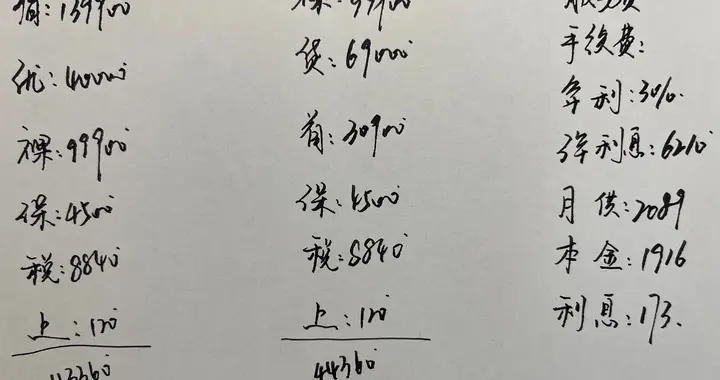 指:139900
优:40000
裸:99900
保:4500
税:8840
上:120
113360
裸:99900
贷:69000
首:30900
保:4500
税:8840
上:120
44360
手续费:
年利:3%.
3年利息:6210
月供:2089
本金:1916
利息:173.